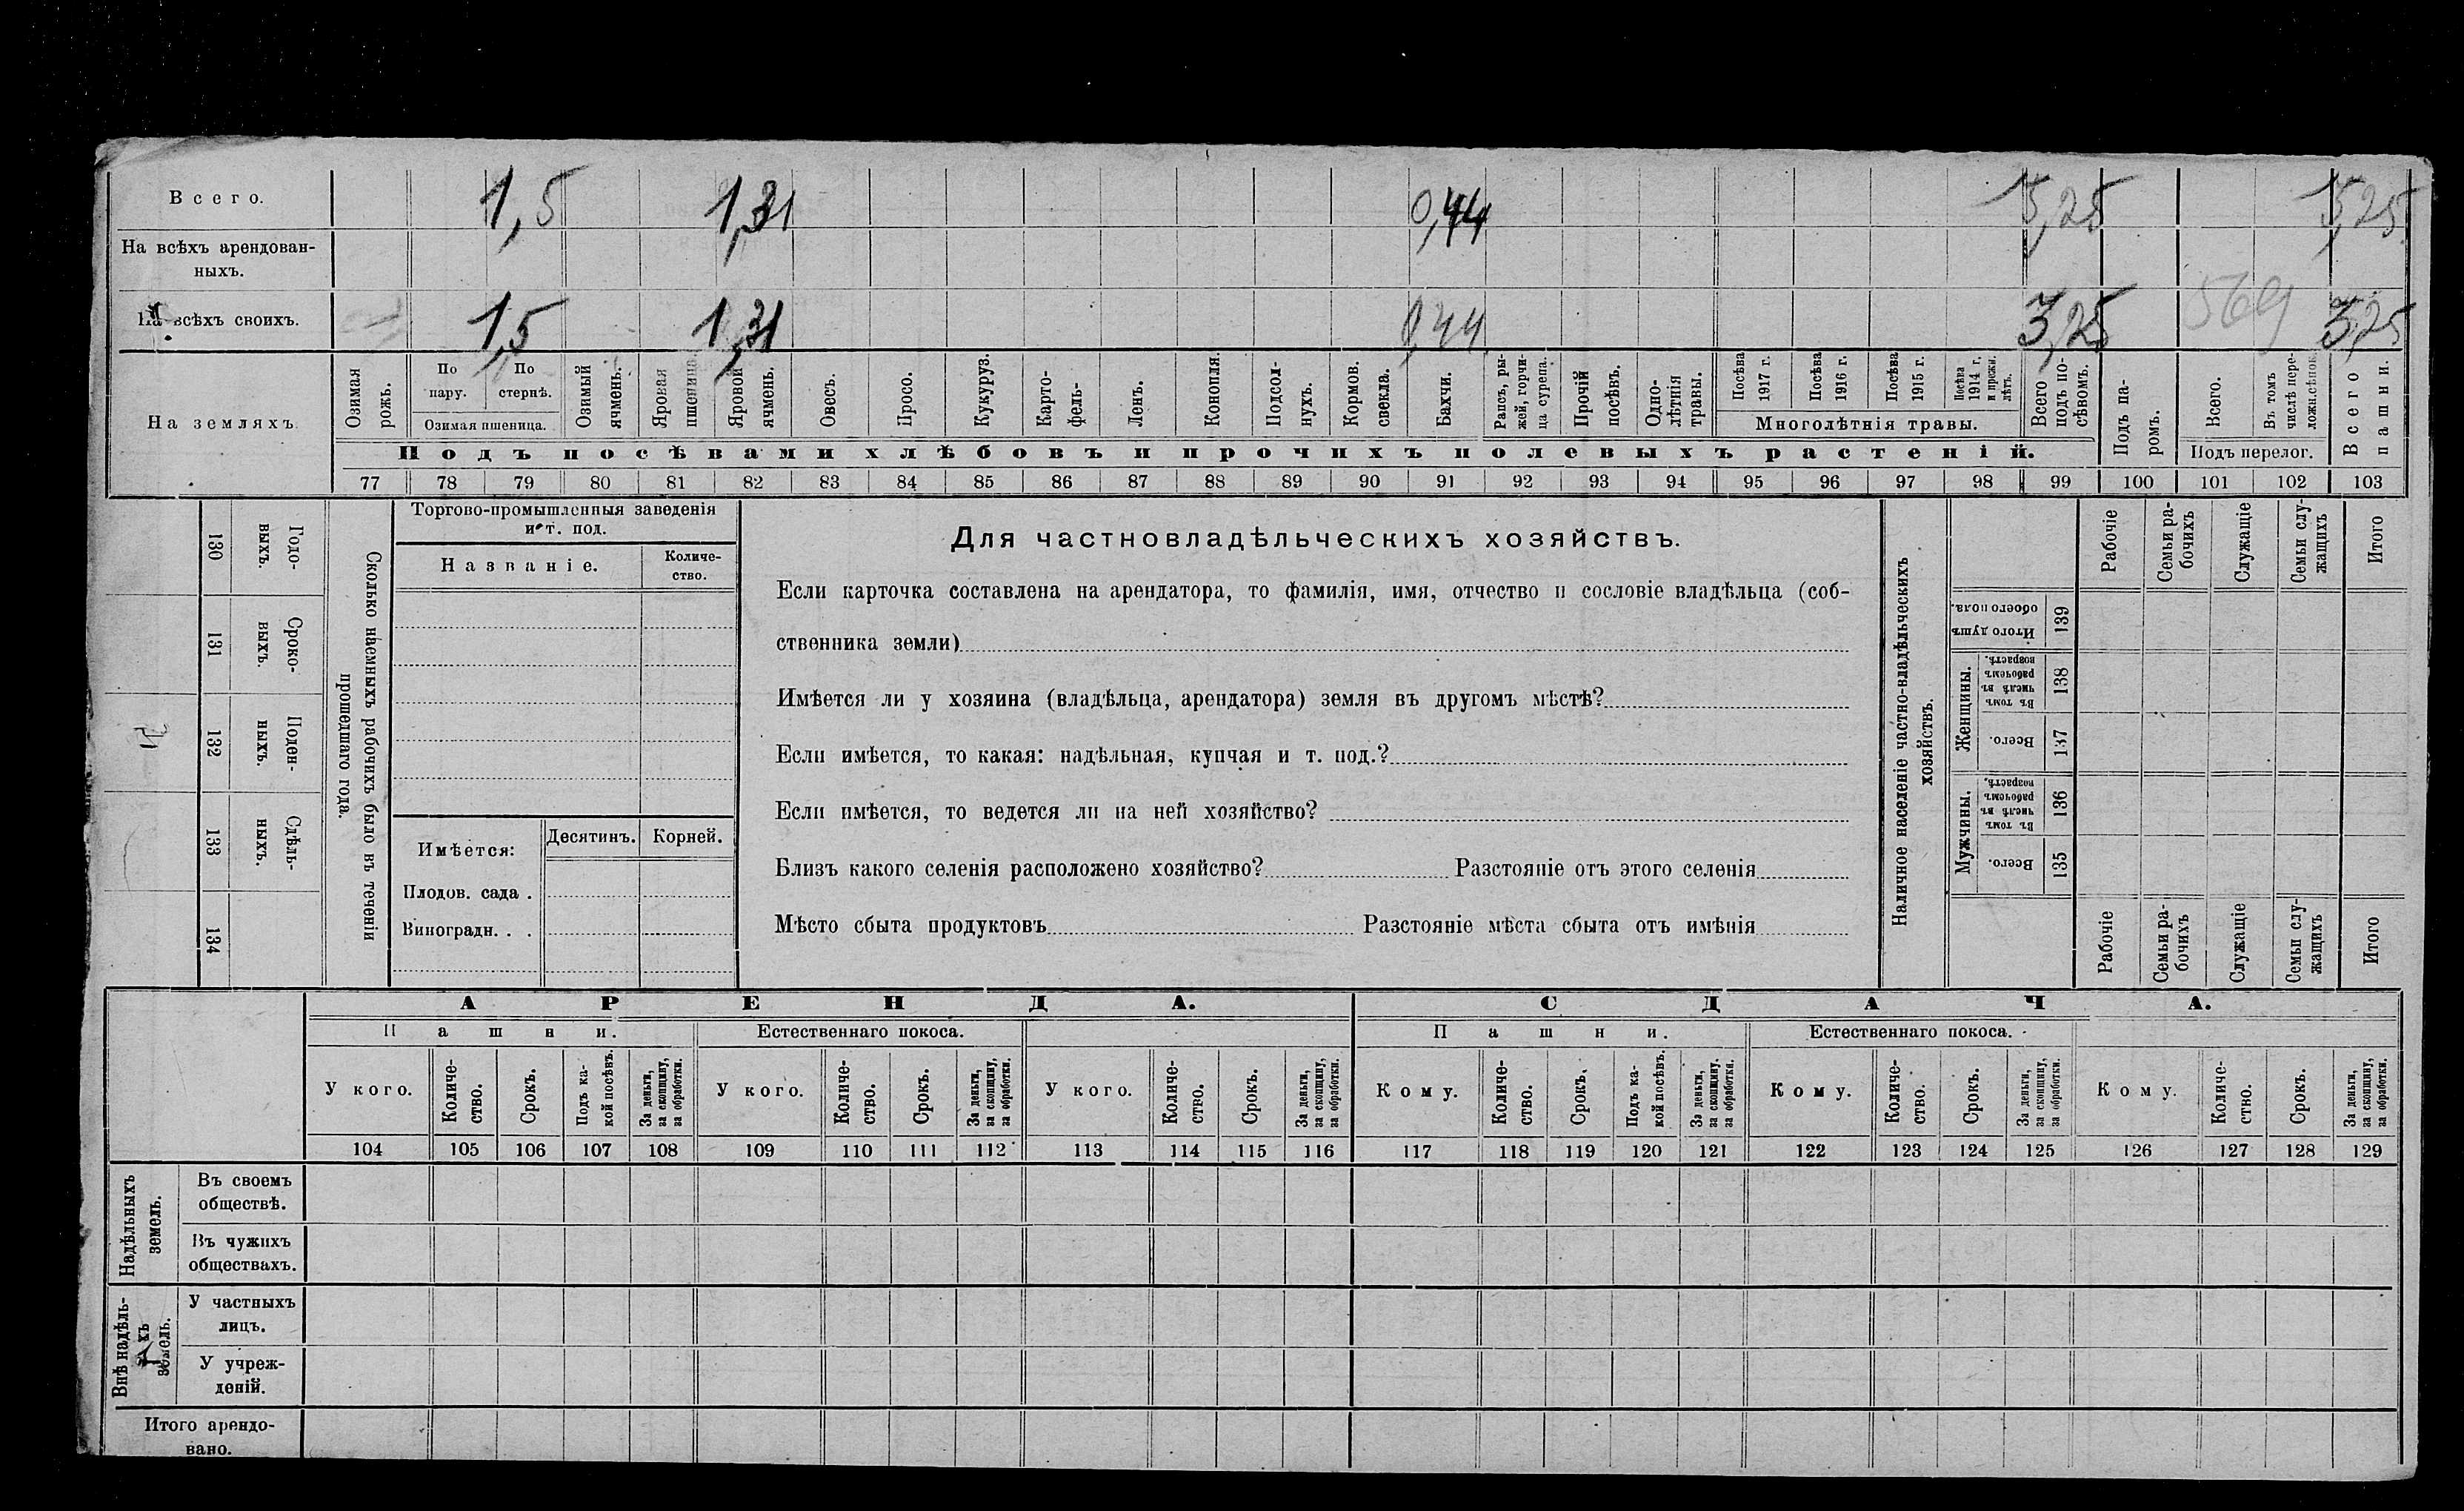 Всего. 1,5 1,31 0,44 3,25 3,25
На всѣхъ арендован-
ныхъ.
На всѣхъ своихъ. 1,5 1,31 0,44 3,25 569 3,25
На земляхъ.
Озимая рожь.
По пару.
По стернѣ.
Озимая пшеница.
Озимый ячмень.
Яровая пшеница.
Яровой ячмень.
Овесъ.
Просо.
Кукуруз.
Карто-
фель.
Ленъ.
Конопля.
Подсол-
нухъ.
Кормов. свекла.
Бахчи.
Рапсъ, ры-
жей, горчи-
ца сурепа.
Прочій посѣвъ.
Одно-
лѣтнія травы.
Посѣва 1917 г.
Посѣва 1916 г.
Посѣва 1915 г.
Посѣва 1914 г. и прежн. лѣтъ.
Многолѣтнія травы.
Всего подъ по-
сѣвомъ.
Подъ посѣвами хлѣбовъ и прочихъ полевыхъ растеній.
Подъ па-
ромъ.
Всего.
Въ томъ числѣ пере-
ложн. сѣнок.
Подъ перелог.
Всего пашни.
77 78 79 80 81 82 83 84 85 86 87 88 89 90 91 92 93 94 95 96 97 98 99 100 101 102 103
Годо-
выхъ.
130
Сроко-
выхъ.
131
Поден-
ныхъ.
132
Сдѣль-
ныхъ.
133
134
Сколько наемныхъ рабочихъ было въ теченіи
прошедшаго года.
Торгово-промышленныя заведенія
и т. под.
Названіе.
Количе-
ство.
Имѣется:
Десятинъ. Корней.
Плодов. сада .
Виноградн. . .
Для частновладѣльческихъ хозяйствъ.
Если карточка составлена на арендатора, то фамилія, имя, отчество и сословіе владѣльца (соб-
ственника земли)
Имѣется ли у хозяина (владѣльца, арендатора) земля въ другомъ мѣстѣ?
Если имѣется, то какая: надѣльная, купчая и т. под.?
Если имѣется, то ведется ли на ней хозяйство?
Близъ какого селенія расположено хозяйство? Разстояніе отъ этого селенія
Мѣсто сбыта продуктовъ Разстояніе мѣста сбыта отъ имѣнія
Наличное населеніе частно-владѣльческихъ
хозяйствъ.
Рабочіе
Семьи ра-
бочихъ
Служащіе
Семьи слу-
жащихъ
Итого
Итого душъ
обоего пола.
139
Женщины.
Въ томъ числѣ въ рабочемъ возрастѣ.
138
Всего.
137
Мужчины.
Въ томъ числѣ въ рабочемъ возрастѣ.
136
Всего.
135
Рабочіе
Семьи ра-
бочихъ
Служащіе
Семьи слу-
жащихъ
Итого
АРЕНДА. СДАЧА.
Пашни. Естественнаго покоса. Пашни. Естественнаго покоса.
У кого.
Количе-
ство.
Срокъ.
Подъ ка-
кой посѣвъ.
За деньги,
за скопщину,
за обработки.
У кого.
Количе-
ство.
Срокъ.
За деньги,
за скопщину,
за обработки.
У кого.
Количе-
ство.
Срокъ.
За деньги,
за скопщину,
за обработки.
Кому.
Количе-
ство.
Срокъ.
Подъ ка-
кой посѣвъ.
За деньги,
за скопщину.
за обработки.
Кому.
Количе-
ство.
Срокъ.
За деньги,
за скопщину,
за обработки.
Кому.
Количе-
ство.
Срокъ.
За деньги,
за скопщину,
за обработки.
104 105 106 107 108 109 110 111 112 113 114 115 116 117 118 119 120 121 122 123 124 125 126 127 128 129
Надѣльныхъ
земель.
Въ своемъ
обществѣ.
Въ чужихъ
обществахъ.
Внѣ надѣль-
земель.
У частныхъ
лицъ.
У учреж-
деній.
Итого арендо-
вано.